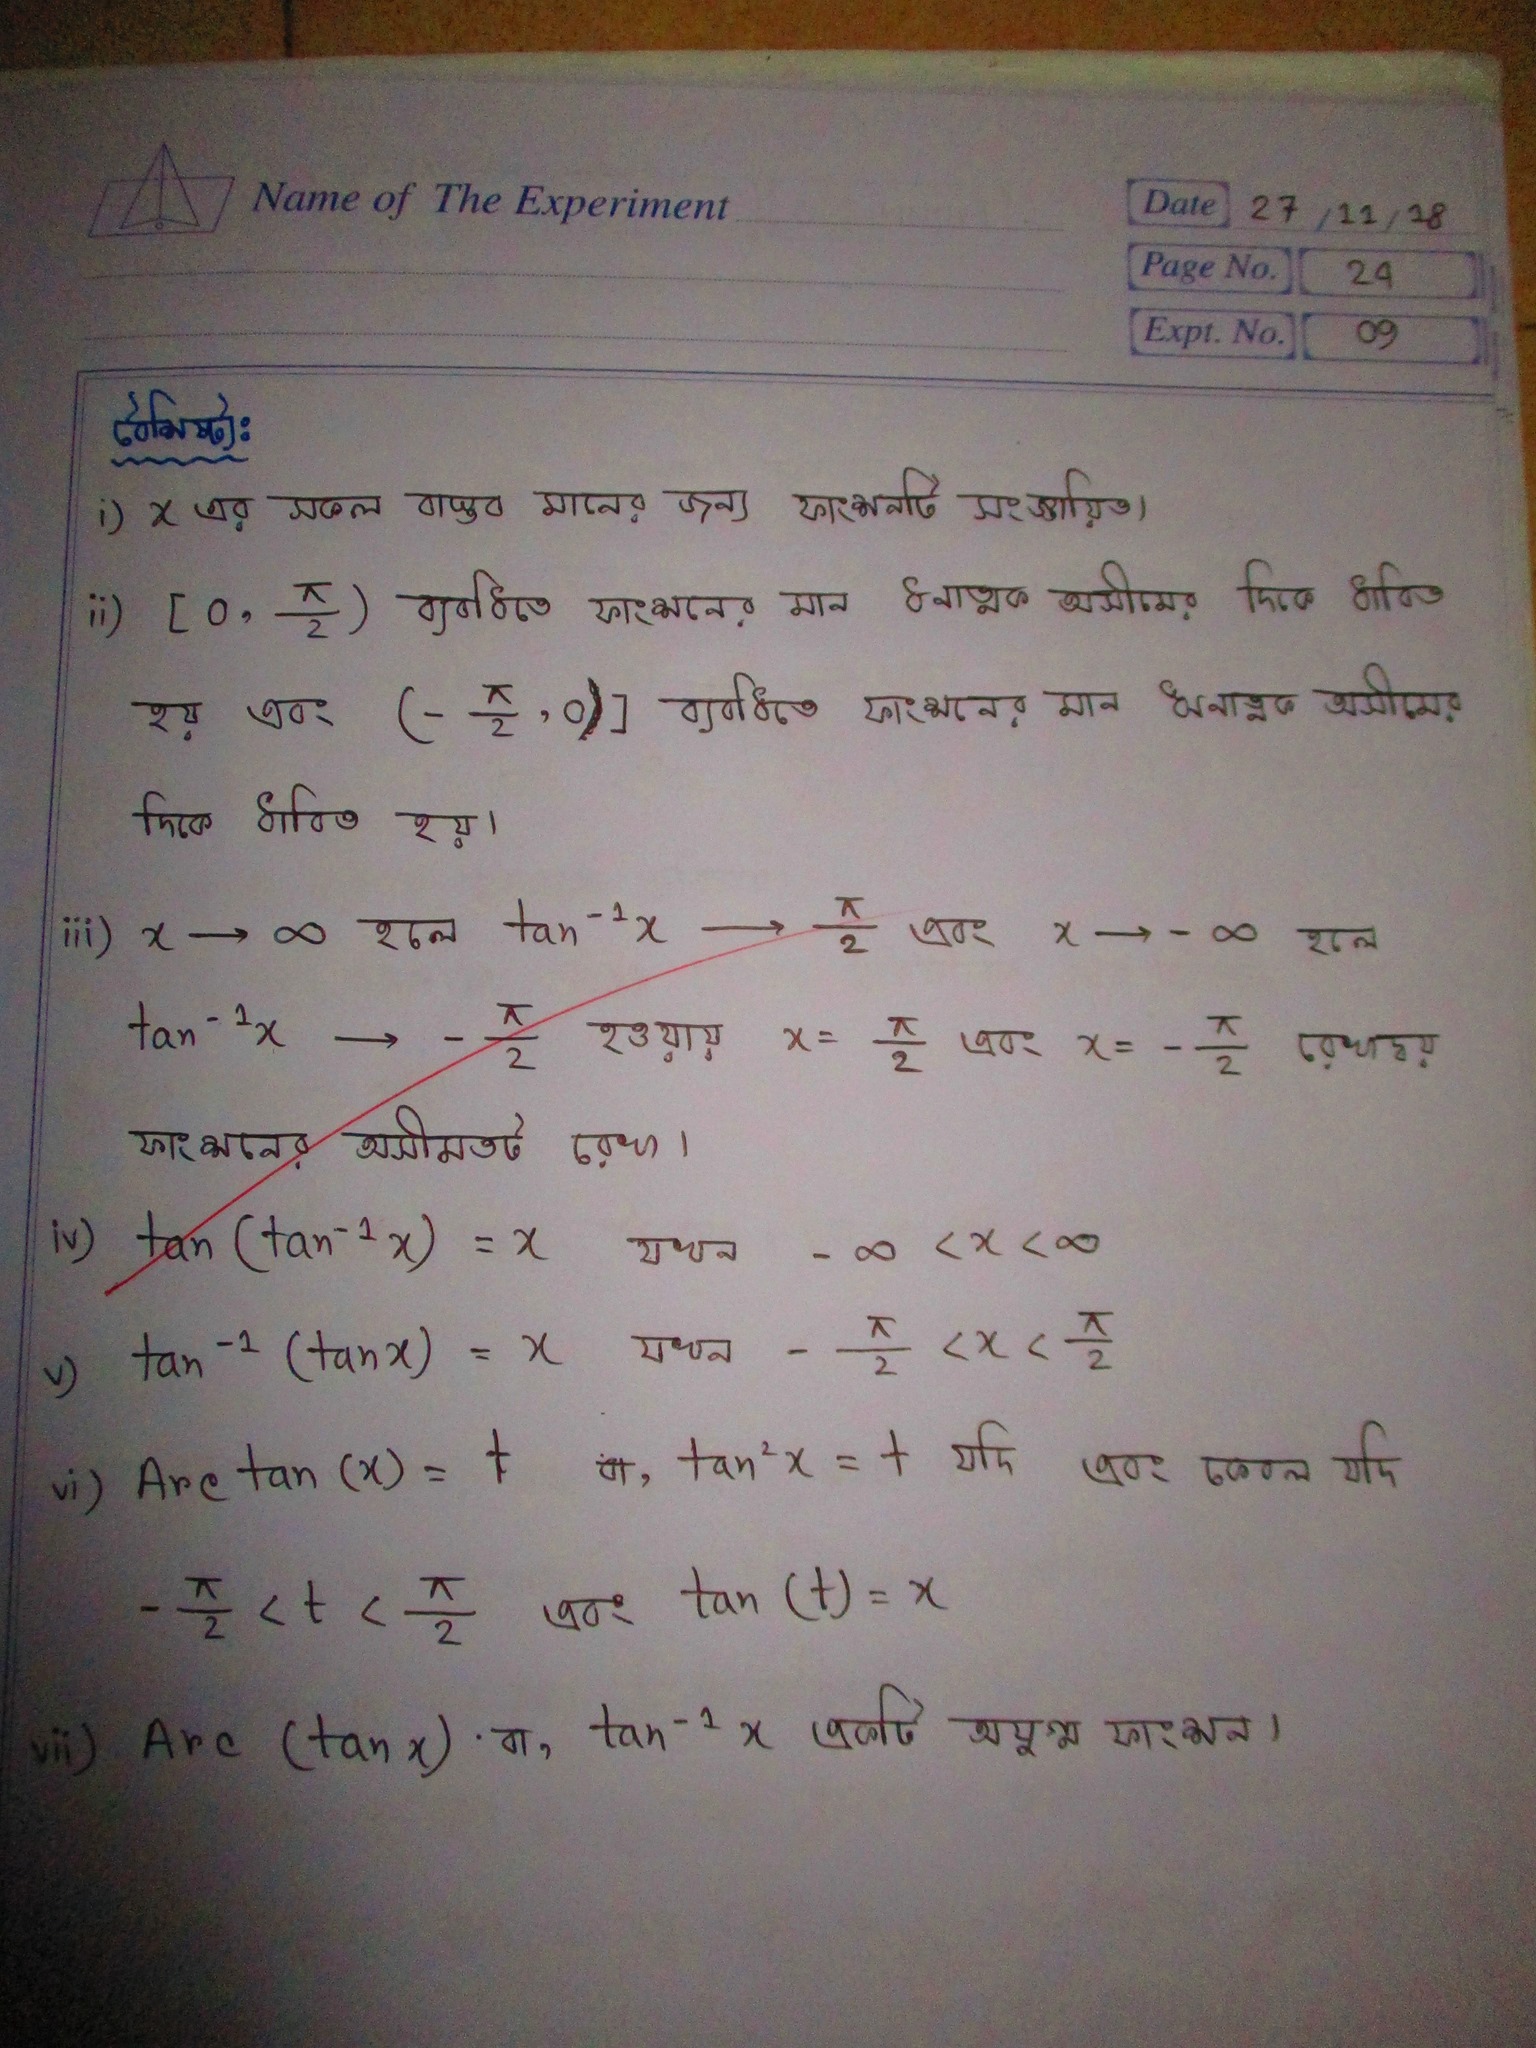 Name of The Experiment
Date 27/11/18
Page No. 24
Expt. No. 09
বৈশিষ্ট্য:
i) x এর সকল বাস্তব মানের জন্য ফাংশনটি সংজ্ঞায়িত।
ii) [0, π/2) ব্যবধিতে ফাংশনের মান ধনাত্মক অসীমের দিকে ধাবিত
হয় এবং (- π/2, 0] ব্যবধিতে ফাংশনের মান ঋনাত্নক অসীমের
দিকে ধাবিত হয়।
iii) x → ∞ হলে tan⁻¹x → π/2 এবং x → - ∞ হলে
tan⁻¹x → - π/2 হওয়ায় x = π/2 এবং x = - π/2 রেখাদ্বয়
ফাংশনের অসীমতট রেখা।
iv) tan (tan⁻¹x) = x যখন - ∞ < x < ∞
v) tan⁻¹ (tanx) = x যখন - π/2 < x < π/2
vi) Arc tan (x) = t বা, tan²x = t যদি এবং কেবল যদি
- π/2 < t < π/2 এবং tan (t) = x
vii) Arc (tan x) . বা, tan⁻¹ x একটি অযুগ্ম ফাংশন।